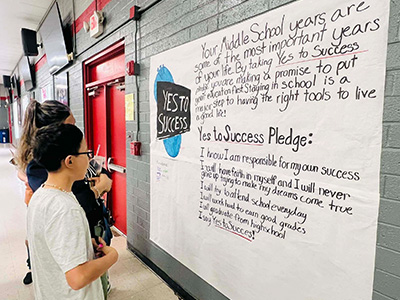 Your Middle School years, are
some of the most important years
of your life. By saying Yes to Success
pledge you are making a promise to put
your education first. Staying in school is a
major step to having the right tools to live
a good life!
YES TO
SUCCESS
Yes to Success Pledge:
I know I am responsible for my own success
I will have faith in myself and I will never
give up trying to make my dreams come true
I will try to attend school everyday
I will work hard to earn good grades
I will graduate from high school
I say Yes to Success!